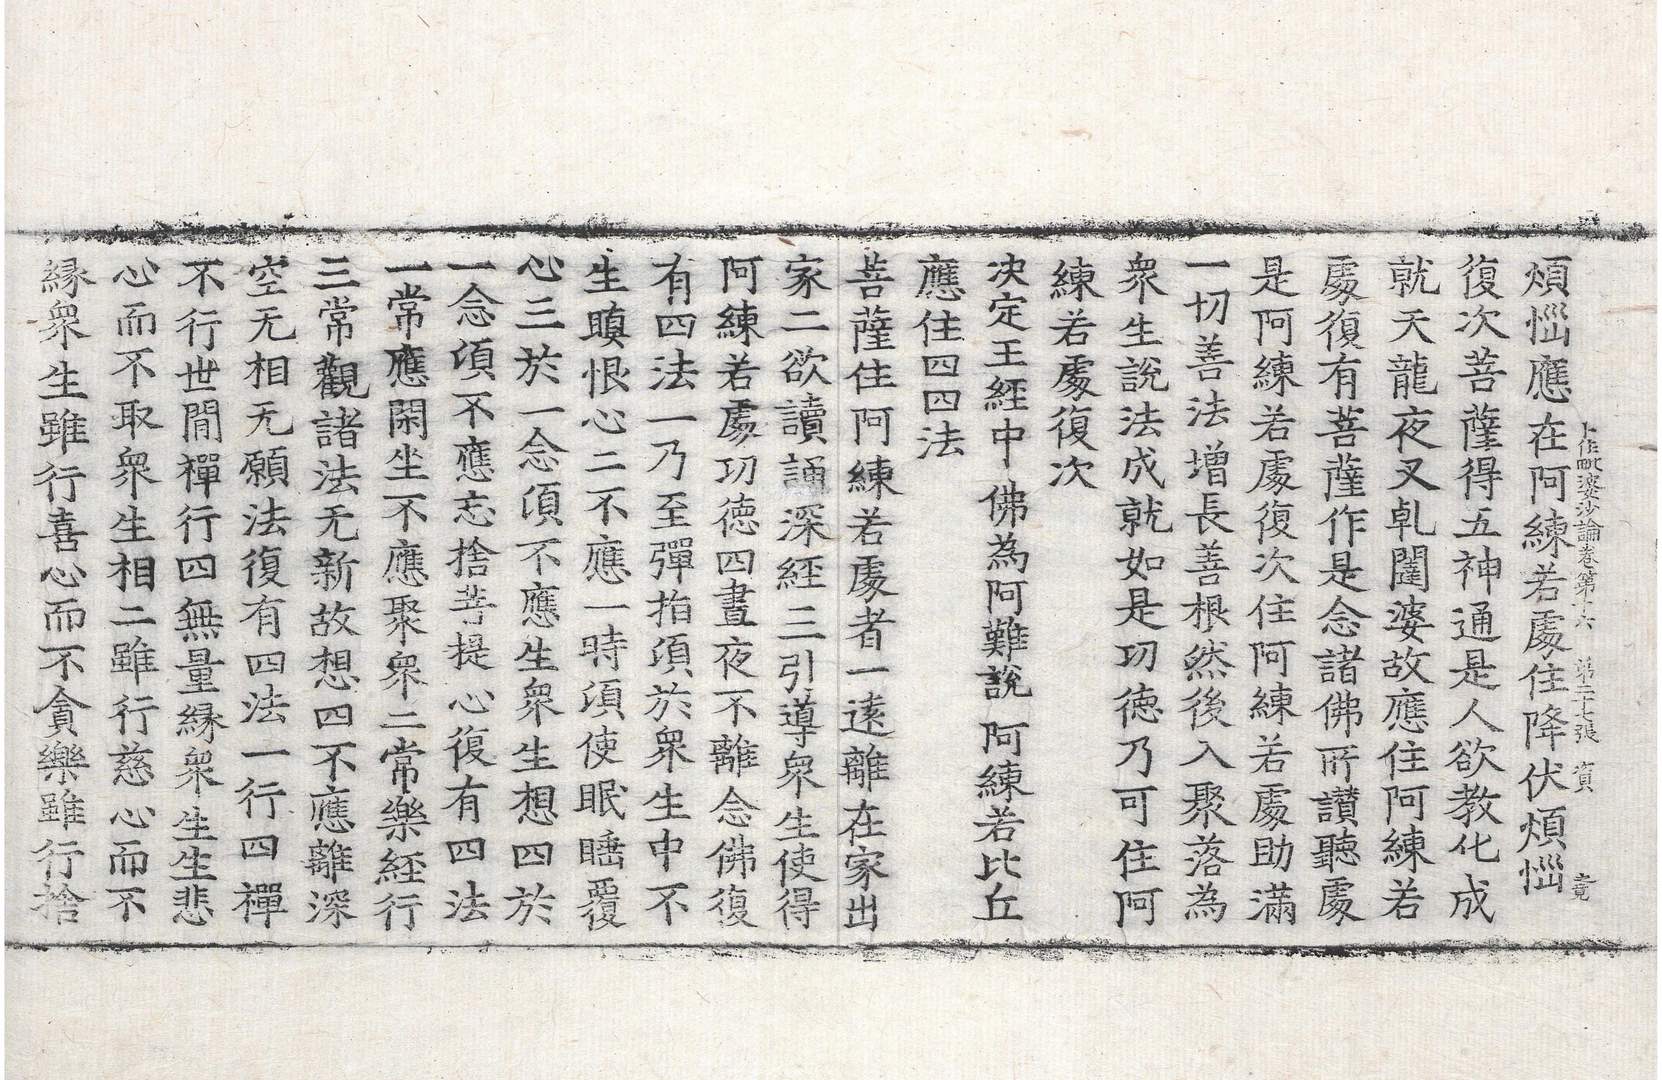 十住毗婆沙論卷第十六 第二十七張 賓
煩惱應在阿練若處住降伏煩惱
復次菩薩得五神通是人欲教化成
就天龍夜叉乹闥婆故應住阿練若
處復有菩薩作是念諸佛所讃聽處
是阿練若處復次住阿練若處助滿
一切善法增長善根然後入聚落為
衆生說法成就如是功德乃可住阿
練若處復次
決定王經中 佛為阿難說 阿練若比丘
應住四四法
菩薩住阿練若處者一遠離在家出
家二欲讀誦深經三引導衆生使得
阿練若處功德四晝夜不離念佛復
有四法一乃至彈指頃於衆生中不
生瞋恨心二不應一時頃使眠睡覆
心三於一念頃不應生衆生想四於
一念頃不應忘捨菩提心復有四法
一常應閑坐不應聚衆二常樂経行
三常觀諸法无新故想四不應離深
空无相无願法復有四法一行四禪
不行世間禪行四無量縁衆生生悲
心而不取衆生相二雖行慈心而不
縁衆生雖行喜心而不貪樂雖行捨